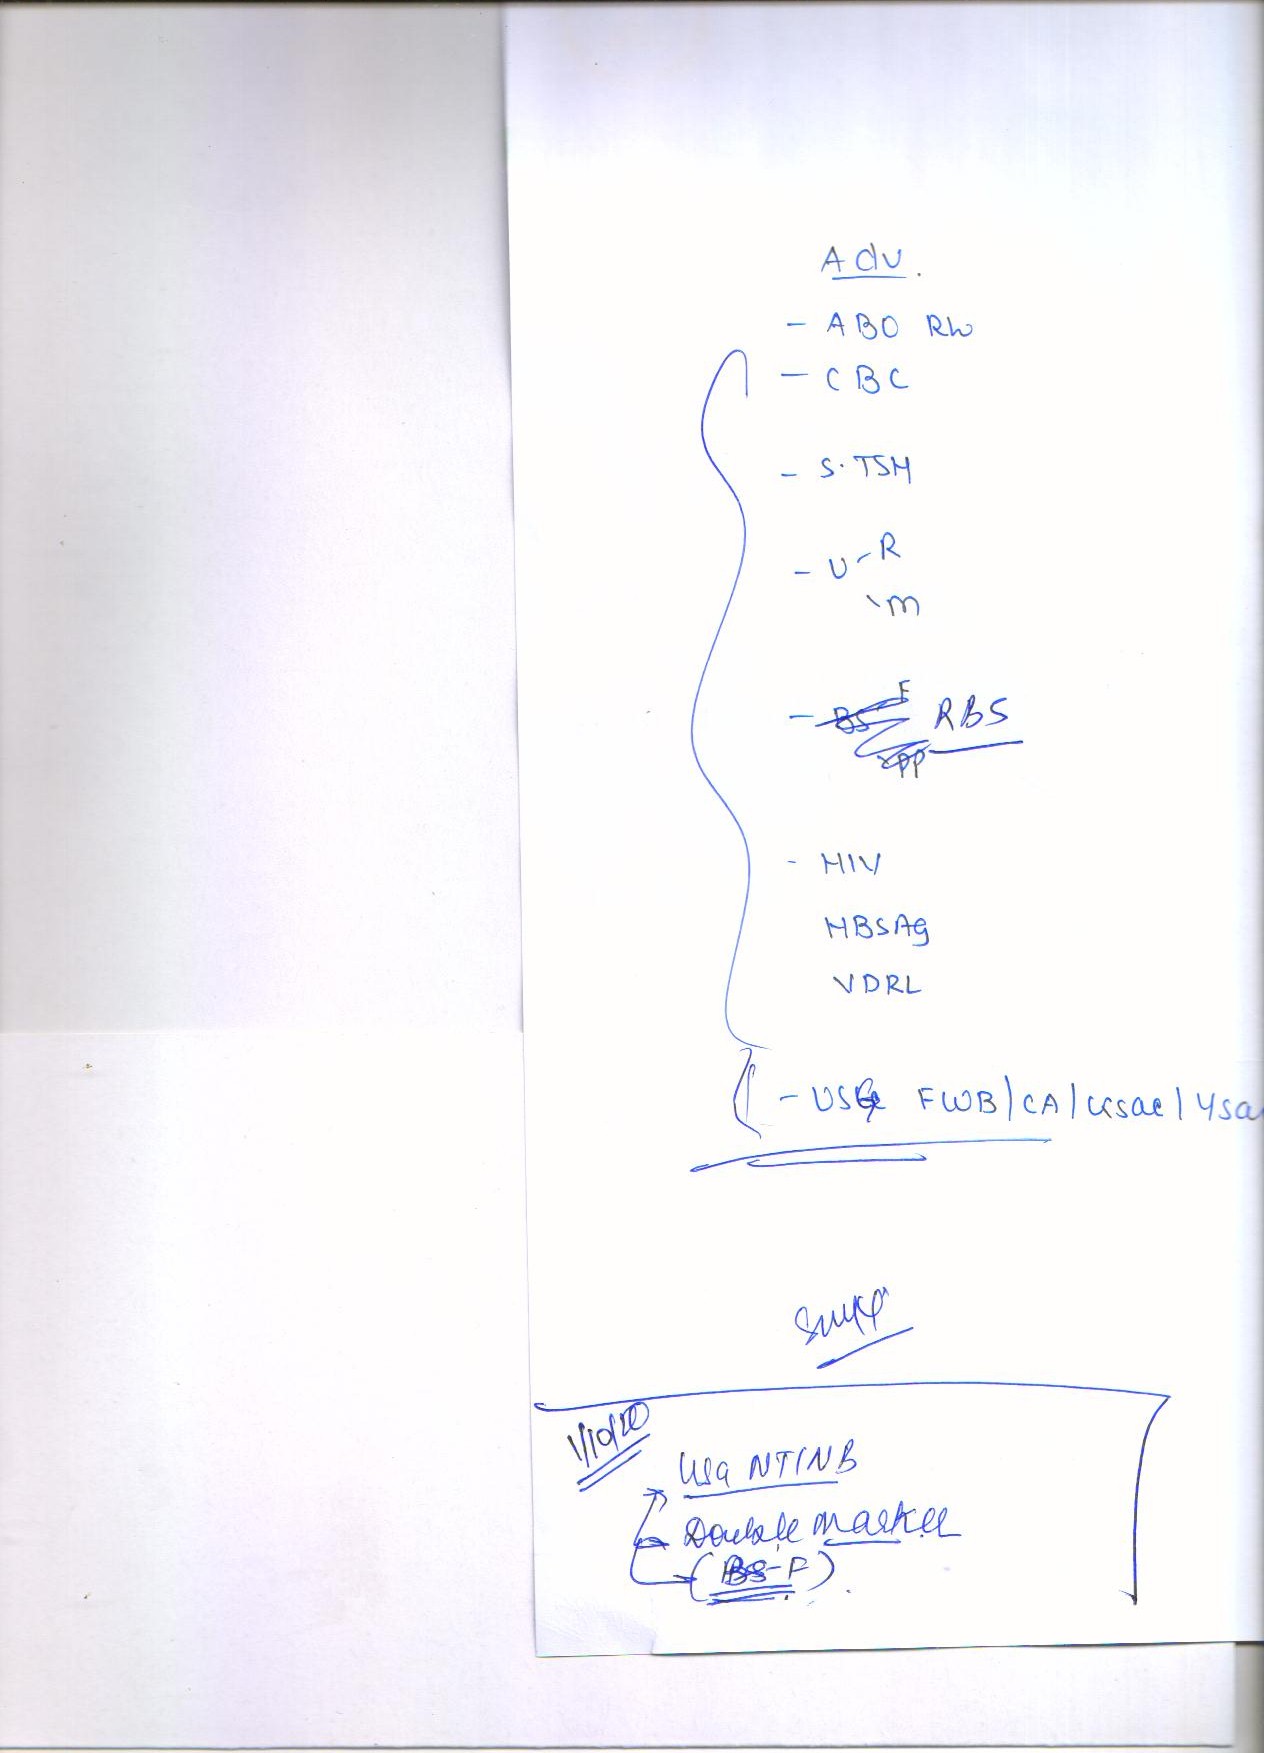 Adv.
- ABO Rh
- CBC
- S. TSH
- U - R
\ m
- BS F RBS
PP
- HIV
HBSAg
VDRL
- USG FWB/CA/
1/10/20
Usg NT/NB
Double Marker
(BS-F).